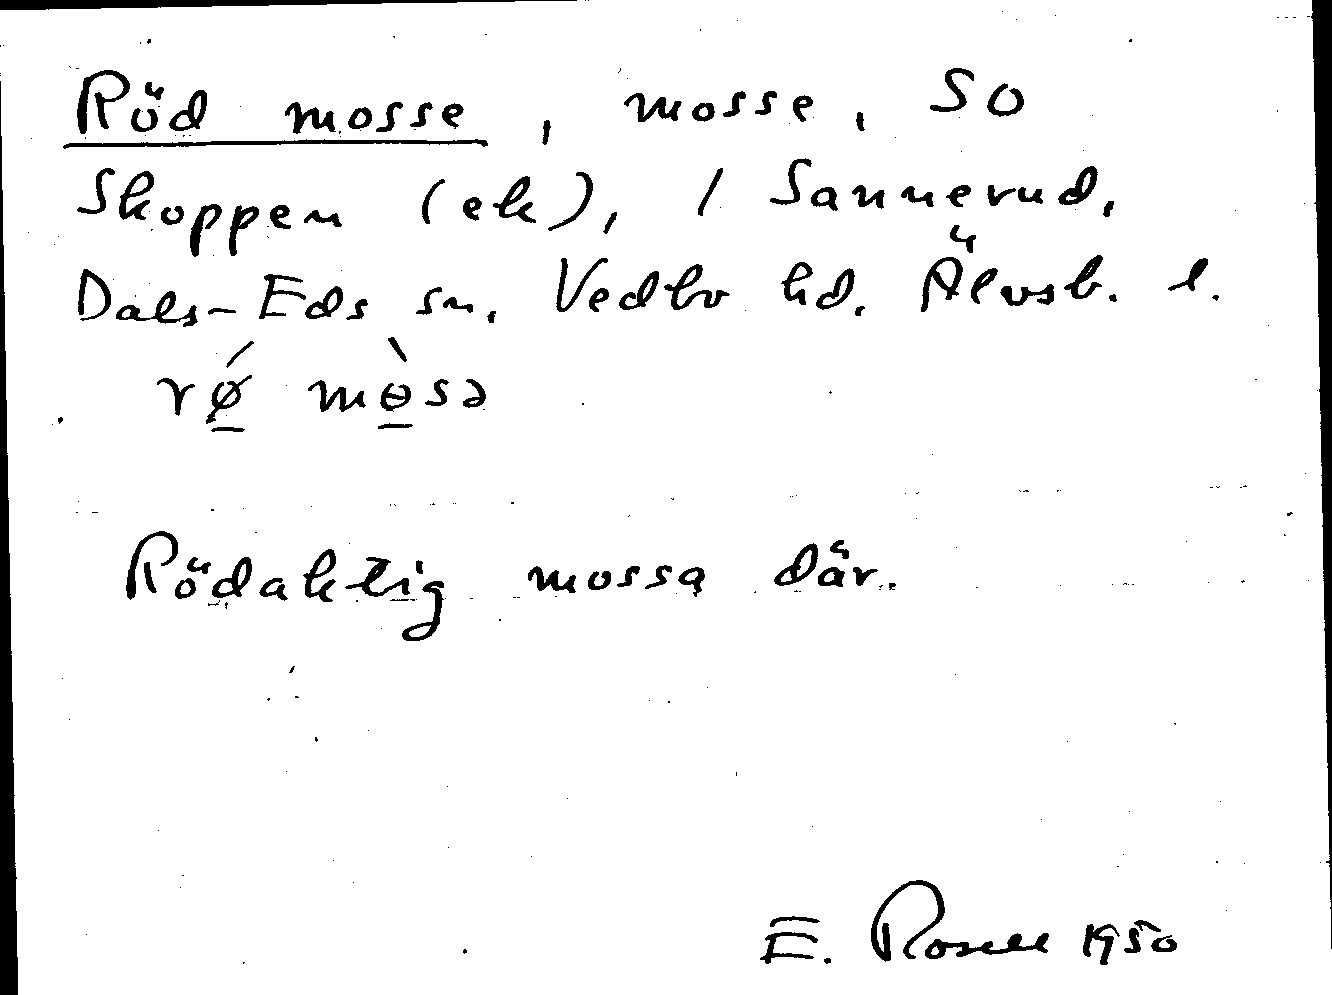 Röd mosse, mosse, SO
Skoppen (ek), / Sannerud,
Dals-Eds sn. Vedbo hd. Älvsb. l.
rǿ̱ mɵ̱̀sə
Rödaktig mossa där.
E. Rosell 1950